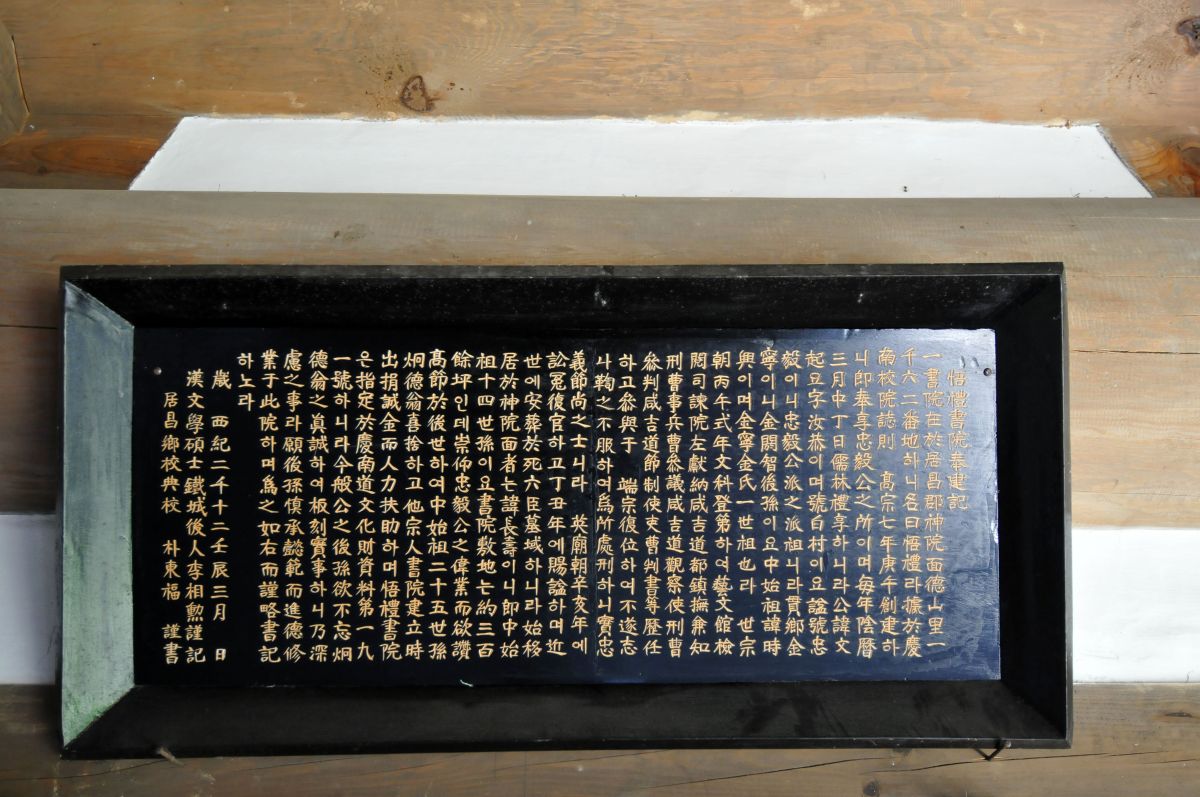 悟禮書院奉建記
一書院在於居昌郡神院面德山里一
千六二番地하니名曰悟禮라據於慶
南校院誌則 高宗七年庚午創建하
니卽奉享忠毅公之所이며每年陰曆
三月中丁日儒林禮享하니라公諱文
起요字汝恭이며號白村이요諡號忠
毅이니忠毅公派之派祖니라貫鄕金
寧이니金閼智後孫이요中始祖諱時
興이며金寧金氏一世祖也라 世宗
朝丙午式年文科登第하여藝文館檢
閱司諫院左獻納咸吉道都鎭撫兼知
刑曹事兵曹參議咸吉道觀察使刑曹
參判咸吉道節制使吏曹判書等歷任
하고參與于 端宗復位하여不遂志
나鞠之不服하여爲所處刑하니實忠
義節尚之士니라 英廟朝辛亥年에
訟冤復官하고丁丑年에賜諡하며近
世에安葬於死六臣墓域하니라始移
居於神院面者는諱長壽이니卽中始
祖十四世孫이요書院敷地는約三百
餘坪인데崇仰忠毅公之偉業而欲讚
高節於後世하여中始祖二十五世孫
炯德翁喜捨하고他宗人書院建立時
出捐誠金而人力扶助하며悟禮書院
은指定於慶南道文化財資料第一九
一號하니라今般公之後孫欲不忘炯
德翁之眞誠하여板刻實事하니乃深
慮之事라願後孫愼承懿範而進德修
業于此院하며爲之如右而謹略書記
하노라
歲 西紀二千十二壬辰三月 日
漢文學碩士鐵城後人李相勲謹記
居昌鄕校典校 朴東福 謹書